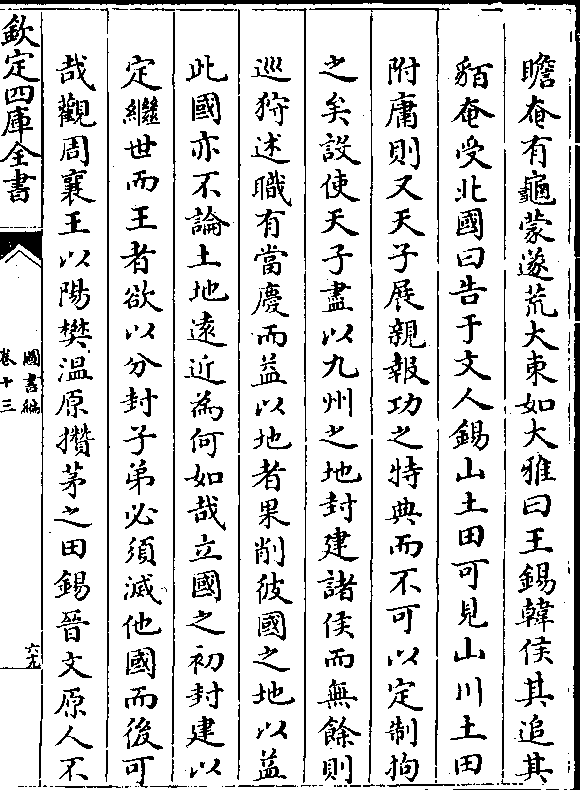 瞻奄有龜蒙遂荒大東如大雅曰王錫韓侯其追其
貊奄受北國曰告于文人錫山土田可見山川土田
附庸則又天子展親報功之特典而不可以定制拘
之矣設使天子盡以九州之地封建諸侯而無餘則
巡狩述職有當慶而益以地者果削彼國之地以益
此國亦不論土地遠近為何如哉立國之初封建以
定繼世而王者欲以分封子弟必須滅他國而後可
哉觀周襄王以陽樊温原攢茅之田錫晉文原人不
欽定四庫全書
圖書編
卷十三
六九